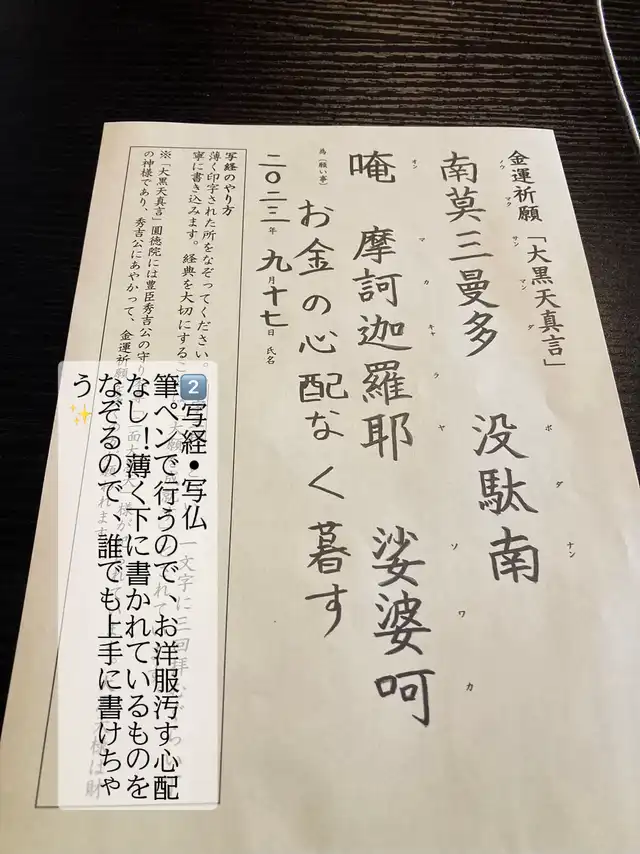 金運祈願「大黒天真言」
南莫三曼多 没駄南
ノウ マク サン マン ダ ボ ダ ナン
唵 摩訶迦羅耶 娑婆呵
オン マ カ キャ ラ ヤ ソ ワ カ
為(願い事) お金の心配なく暮す
二〇二三年 九月十七日 氏名
写経のやり方
薄く印字された所をなぞってください。
寧に書き込みます。経典を大切にするこ
※「大黒天真言」圓徳院には豊臣秀吉公の守り
の神様であり、秀吉公にあやかって、金運祈願
2 写経・写仏
筆ペンで行うので、お洋服汚す心配
なし！薄く下に書かれているものを
なぞるので 誰でも上手に書けちゃ
う✨